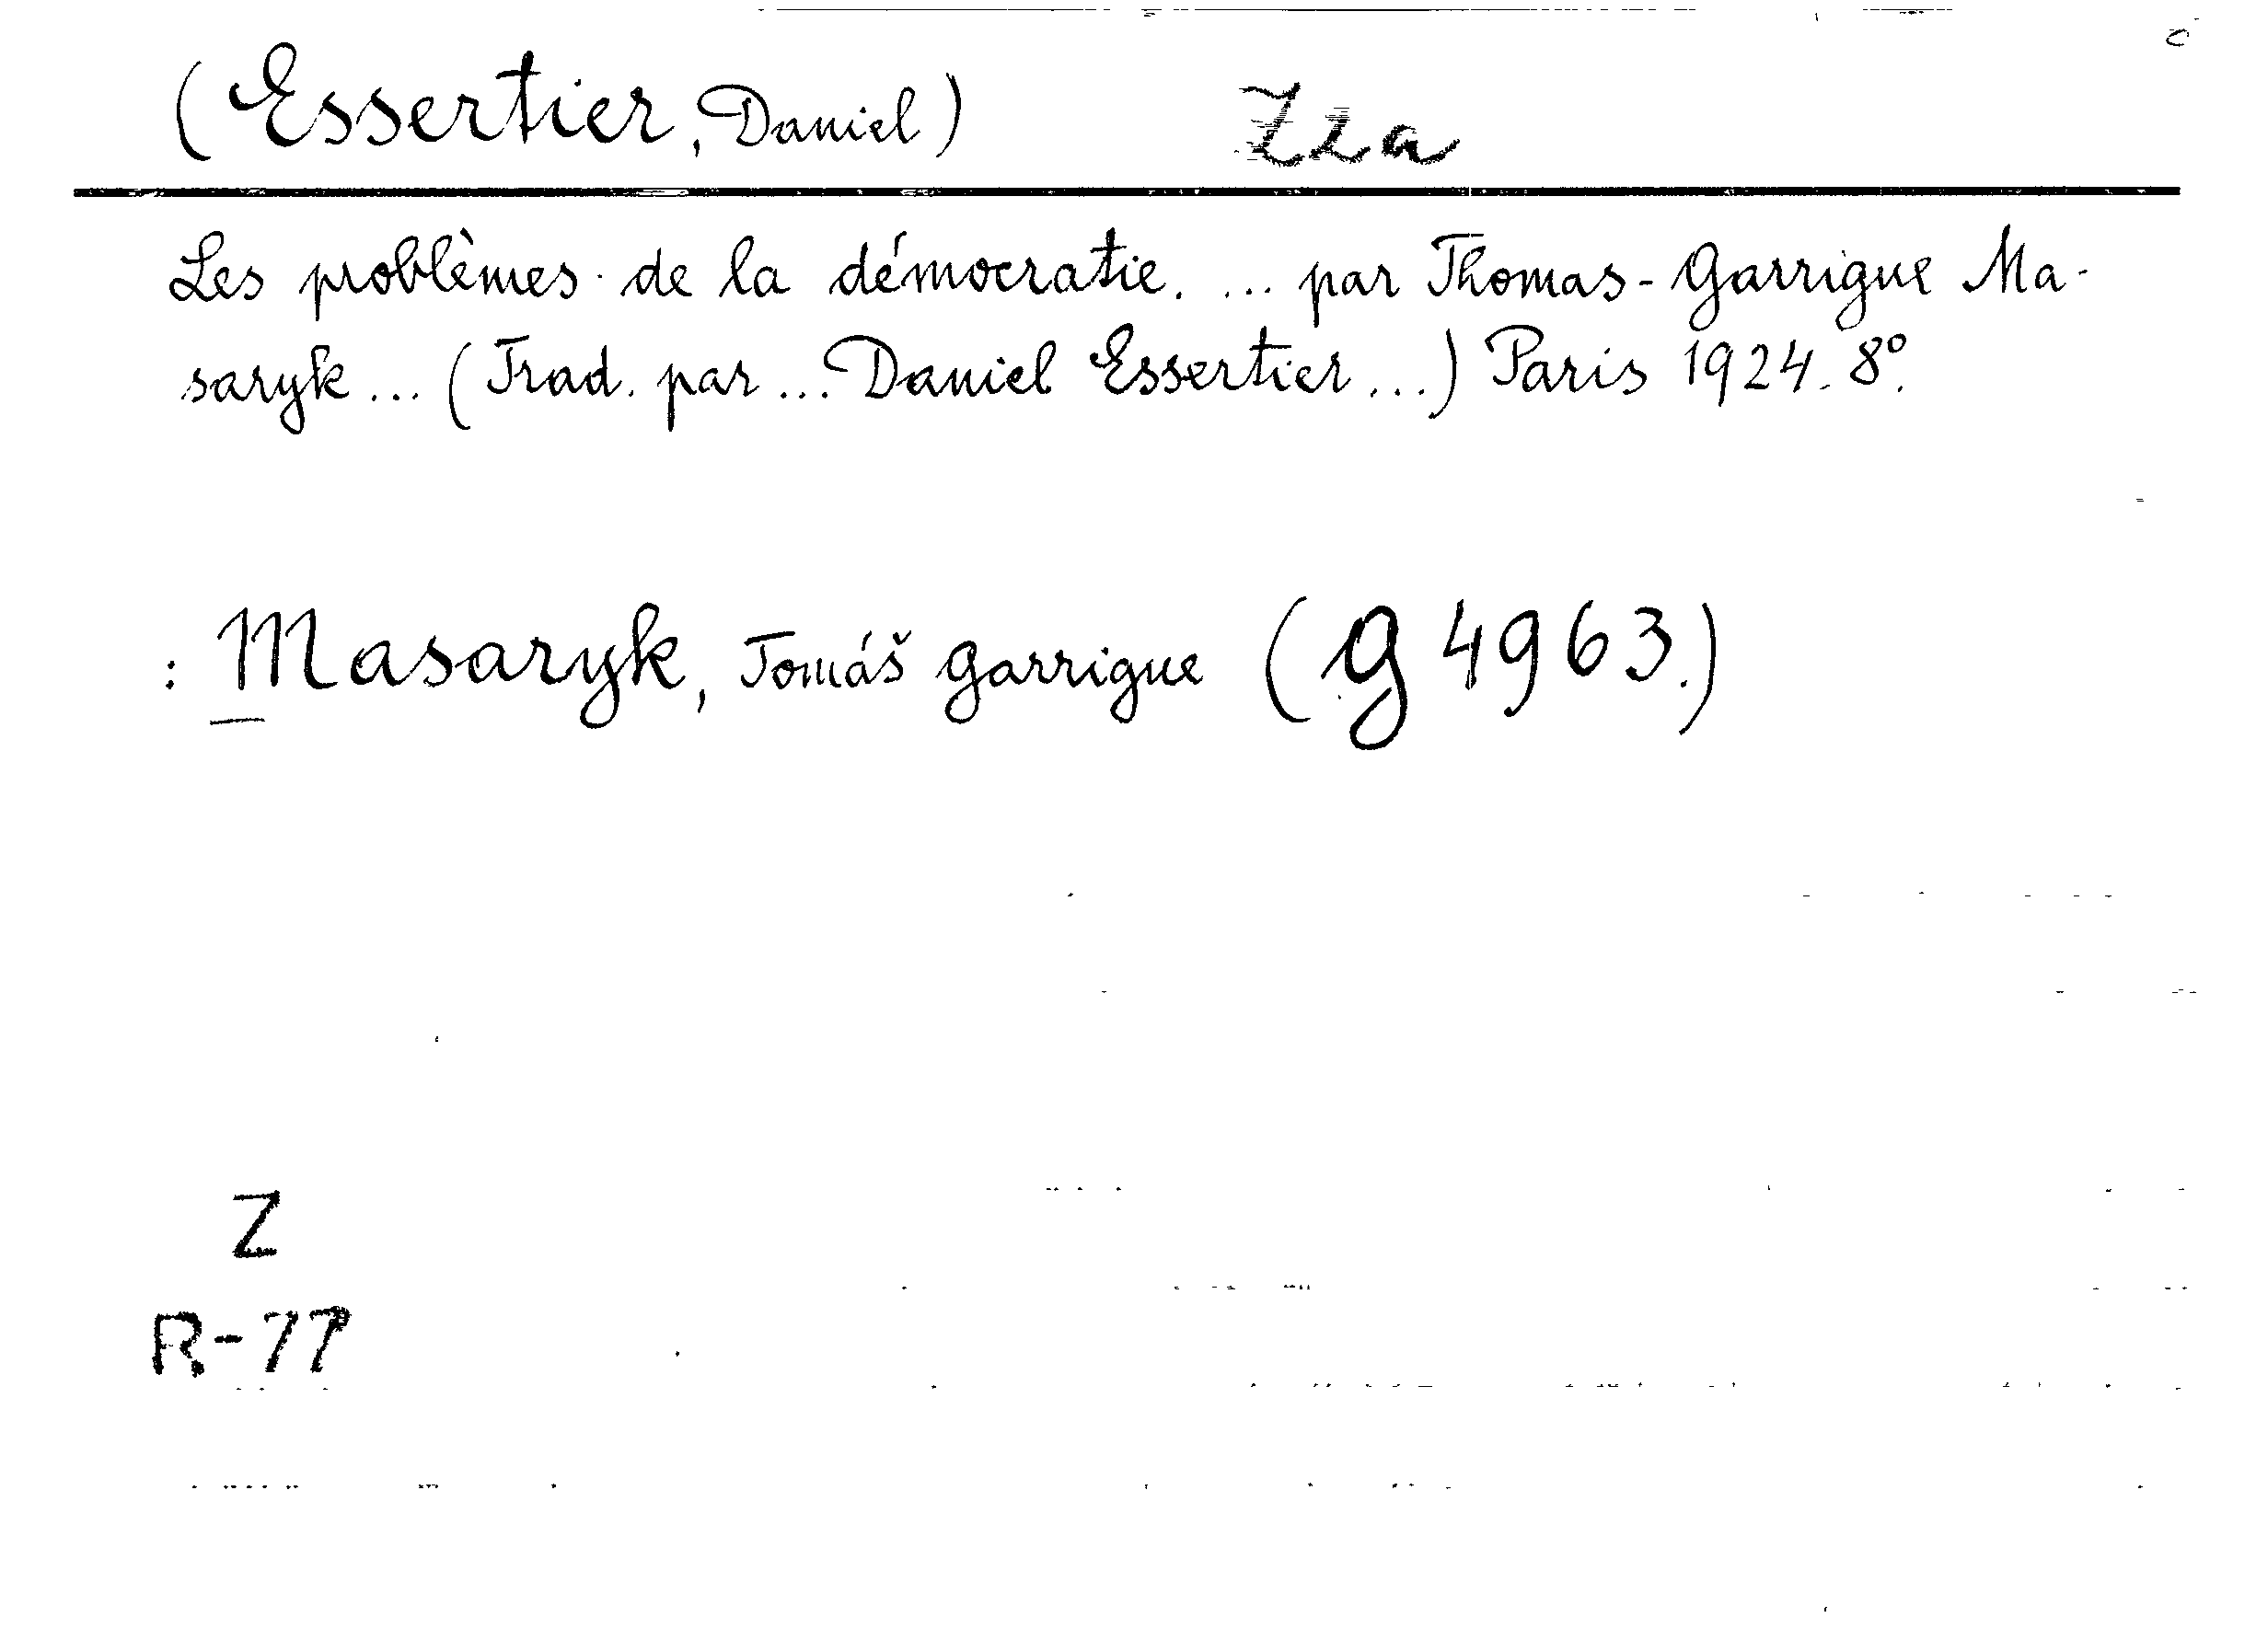 (Essertier, Daniel)
Les problèmes de la démocratie. ... par Thomas-Garrigue Ma-
saryk ... (Trad. par ... Daniel Essertier ...) Paris 1924. 8°.
: Masaryk, Tomáš Garrigue (g 4963.)
Z
R-77